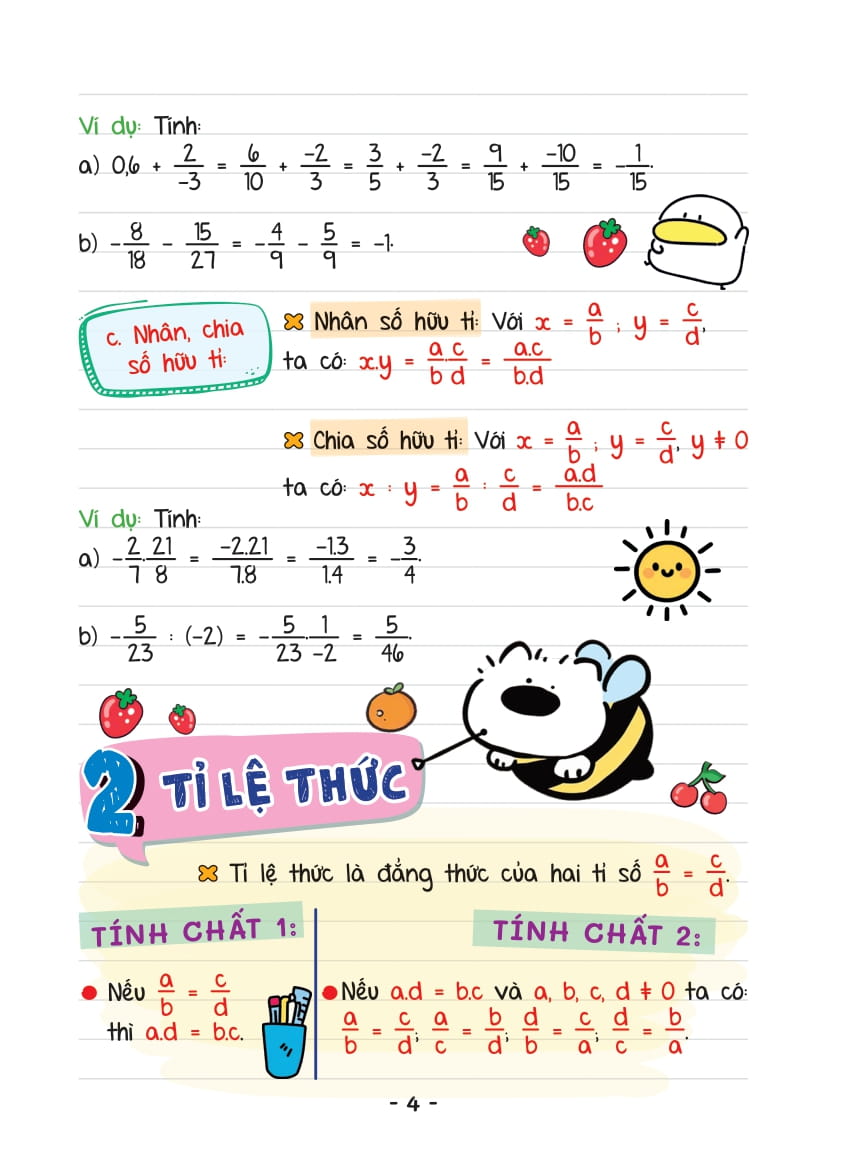 Ví dụ: Tính:
a) 0,6 + 2/-3 = 6/10 + -2/3 = 3/5 + -2/3 = 9/15 + -10/15 = -1/15.
b) -8/18 - 15/27 = -4/9 - 5/9 = -1.
c. Nhân, chia
số hữu tỉ:
Nhân số hữu tỉ: Với x = a/b ; y = c/d,
ta có: x.y = a/b.c/d = a.c/b.d
Chia số hữu tỉ: Với x = a/b ; y = c/d, y ≠ 0
ta có: x : y = a/b : c/d = a.d/b.c
Ví dụ: Tính:
a) -2/7.21/8 = -2.21/7.8 = -1.3/1.4 = -3/4.
b) -5/23 : (-2) = -5/23.1/-2 = 5/46.
2. TỈ LỆ THỨC
Tỉ lệ thức là đẳng thức của hai tỉ số a/b = c/d.
TÍNH CHẤT 1:
Nếu a/b = c/d
thì a.d = b.c.
TÍNH CHẤT 2:
Nếu a.d = b.c và a, b, c, d ≠ 0 ta có:
a/b = c/d; a/c = b/d; d/b = c/a; d/c = b/a.
- 4 -